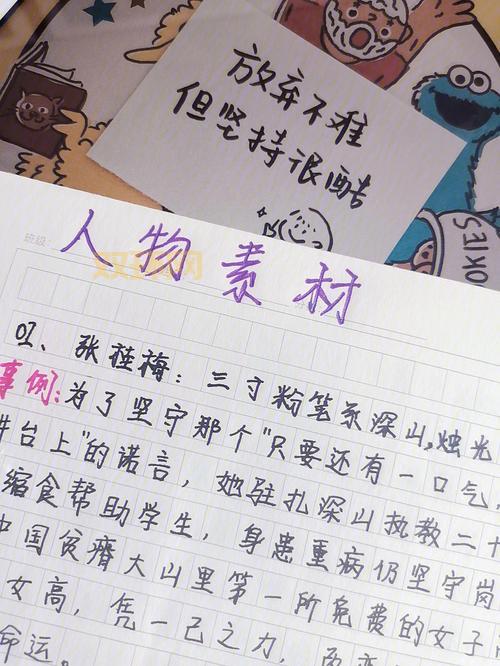 放弃不难
但坚持很酷
OOKIES
班级:
人物素材
01、张桂梅:三寸粉笔系深山,烛光
事例:为了坚守那个"只要还有一口气,
讲台上"的诺言,她驻扎深山执教二十
缩食帮助学生,身患重病仍坚守岗
中国贫瘠大山里第一所免费的女子
女高,凭一己之力,
命运。